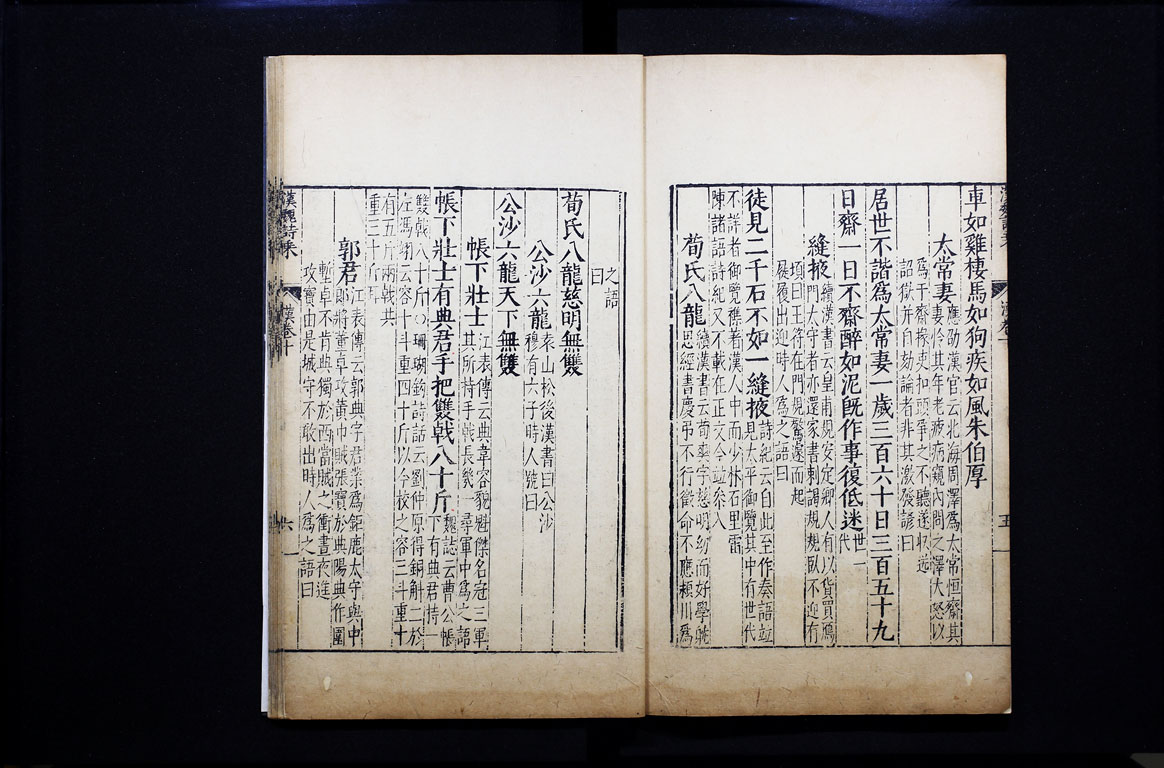 車如雞棲馬如狗疾如風朱伯厚
太常妻
應劭漢官云北海周澤爲太常恒齋其
妻怜其年老疲病窺內問之澤大怒以
爲干齋掾吏扣頭爭之不聽遂收送
詔獄并自劾論者非其激發諺曰
居世不諧爲太常妻一歲三百六十日三百五十九
日齋一日不齋醉如泥旣作事復低迷
世一
代
縫掖
續漢書云皇甫規安定鄉人有以貨買鴈
門太守者亦還家書刺謁規規臥不迎有
頃白王符在門規驚遽而起
屣履出迎時人爲之語曰
徒見二千石不如一縫掖
詩紀云自此至作奏語竝
見太平御覽其中有世代
不詳者御覽襍著漢人中而少林石里雷
陳諸語詩紀又不載在正文今竝叅入
荀氏八龍
續漢書云荀爽字慈明幼而好學躭
思經書慶弔不行徵命不應潁川爲
之語
曰
荀氏八龍慈明無雙
公沙六龍
袁山松後漢書曰公沙
穆有六子時人號曰
公沙六龍天下無雙
帳下壯士
江表傳云典韋容貌魁傑名冠三軍
其所持手戟長幾尋軍中爲之語
帳下壯士有典君手把雙戟八十斤
魏誌云曹公帳
下有典君持一
雙戟八十斤○珊瑚鈎詩話云劉仲原得銅斛二於
左馮翊云容十斗重四十斤以今校之容三斗重十
有五斤兩戟共
重三十斤耳
郭君
江表傳云郭典字君業爲鉅鹿太守與中
郎將董卓攻黃巾賊張寶於典陽典作圍
塹卓不肯典獨於西當賊之衝晝夜進
攻寶由是城守不敢出時人爲之語曰
漢魏詩乘
漢卷十
六
五